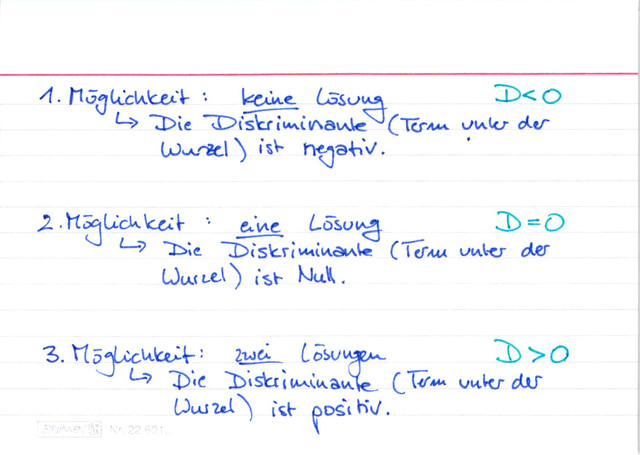 1. Möglichkeit: keine Lösung D<0
↳ Die Diskriminante (Term unter der
Wurzel) ist negativ.
2. Möglichkeit: eine Lösung D=0
↳ Die Diskriminante (Term unter der
Wurzel) ist Null.
3. Möglichkeit: zwei Lösungen D>0
↳ Die Diskriminante (Term unter der
Wurzel) ist positiv.
Nr. 22 601